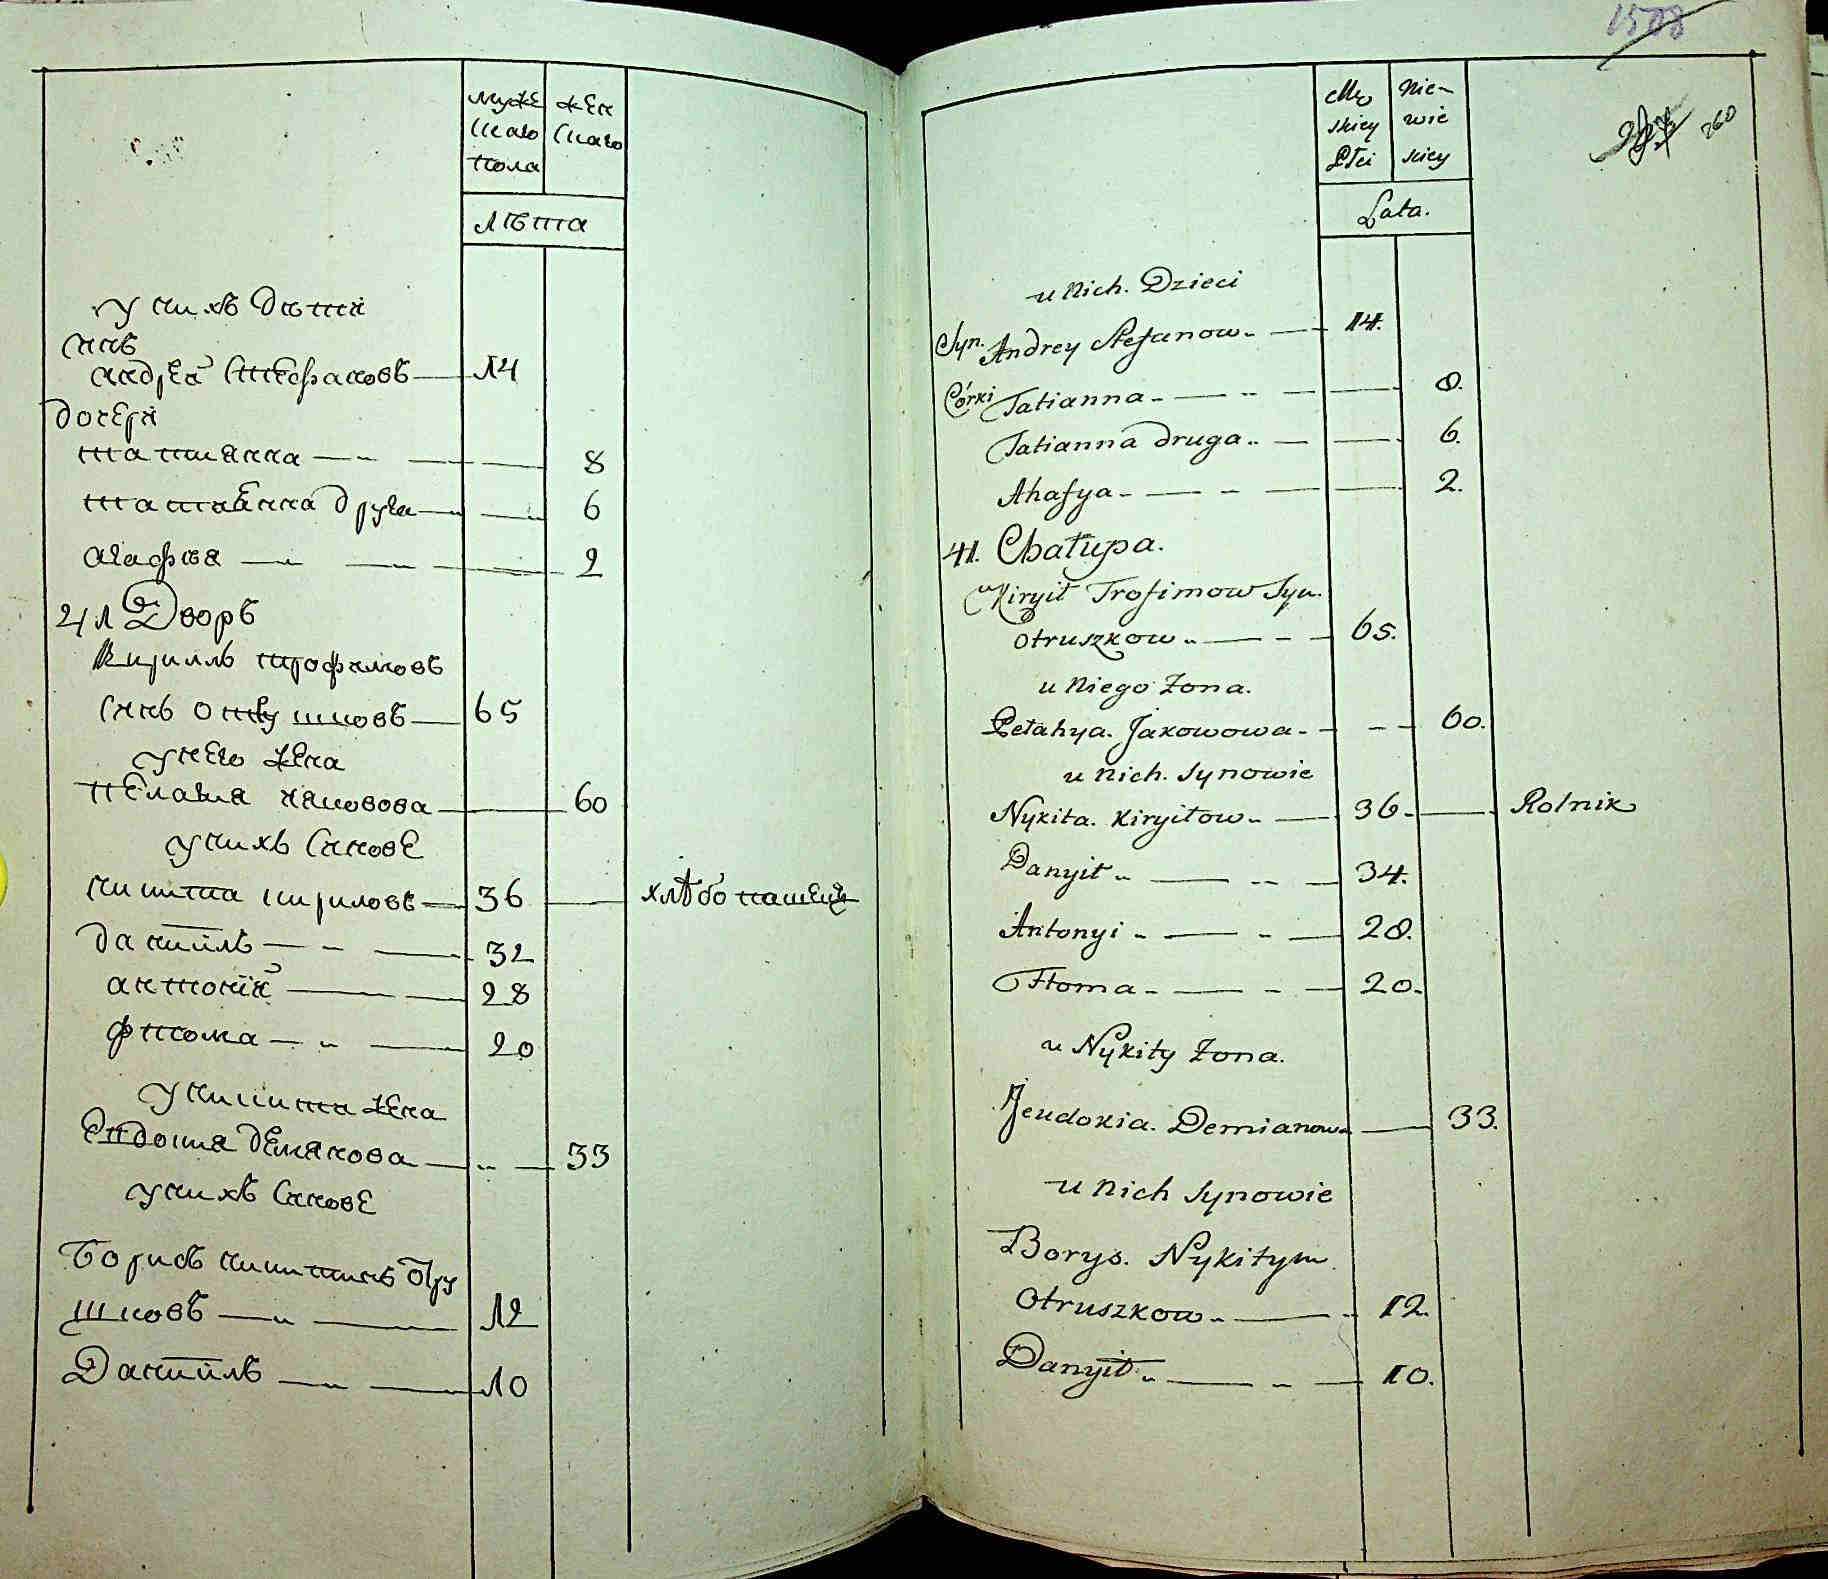 муже
скаго
пола
жен
скаго
Лѣта
у нихъ дѣти
сынъ
андрей стефановъ 14
дочери
татианна 8
татиянна друга 6
агафия 2
41 Дворъ
Кирилъ трофимовъ
сынъ отрушковъ 65
у него жена
пелагия яковова 60
у нихъ сынове
никита кириловъ 36 хлѣбопашецъ
даниилъ 32
антоний 28
фтома 20
у никиты жена
Евдокия демянова 33
у нихъ сынове
Борисъ никитинъ Отру
шковъ 12
Даниилъ 10
1508
260
Mę
skiey
Płci
Nie-
wie
skiey
Lata.
u Nich. Dzieci
Syn. Andrey Stefanow 14.
Córki Tatianna 8.
Tatianna druga 6.
Ahafya 2.
41. Chałupa.
Kiryił Trofimow Syn.
Otruszkow 65.
u Niego Żona.
Pełahya. Jakowowa 60.
u Nich. Synowie
Nykita. Kiryiłow 36. Rolnik
Danyił 34.
Antonyi 28.
Ftoma 20.
u Nykity Żona.
Jeudokia. Demianowa 33.
u Nich Synowie
Borys. Nykityn
Otruszkow 12.
Danyił 10.